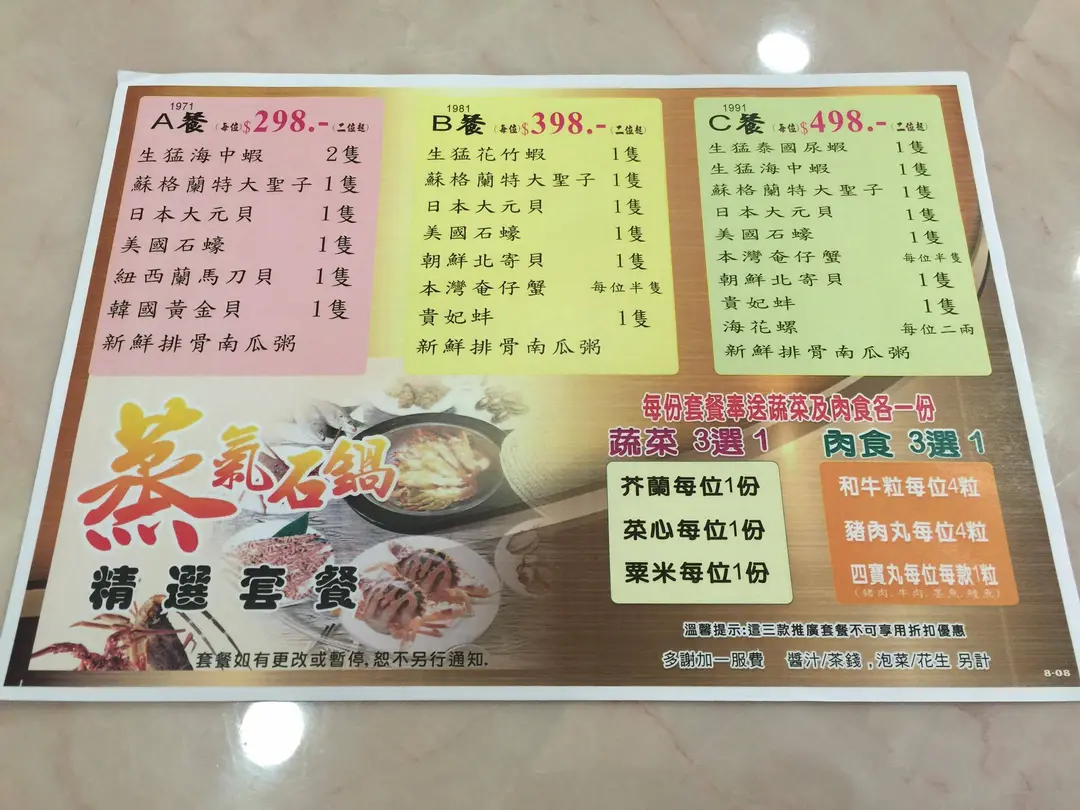 1971
A餐 (每位)$298.- (二位起)
生猛海中蝦 2隻
蘇格蘭特大聖子 1隻
日本大元貝 1隻
美國石蠔 1隻
紐西蘭馬刀貝 1隻
韓國黃金貝 1隻
新鮮排骨南瓜粥
1981
B餐 (每位)$398.- (二位起)
生猛花竹蝦 1隻
蘇格蘭特大聖子 1隻
日本大元貝 1隻
美國石蠔 1隻
朝鮮北寄貝 1隻
本灣奄仔蟹 每位半隻
貴妃蚌 1隻
新鮮排骨南瓜粥
1991
C餐 (每位)$498.- (二位起)
生猛泰國尿蝦 1隻
生猛海中蝦 1隻
蘇格蘭特大聖子 1隻
日本大元貝 1隻
美國石蠔 1隻
本灣奄仔蟹 每位半隻
朝鮮北寄貝 1隻
貴妃蚌 1隻
海花螺 每位二兩
新鮮排骨南瓜粥
蒸氣石鍋
精選套餐
套餐如有更改或暫停,恕不另行通知.
每份套餐奉送蔬菜及肉食各一份
蔬菜 3選1
芥蘭每位1份
菜心每位1份
粟米每位1份
肉食 3選1
和牛粒每位4粒
豬肉丸每位4粒
四寶丸每位每款1粒
(豬肉.牛肉.墨魚.鯪魚)
溫馨提示:這三款推廣套餐不可享用折扣優惠
多謝加一服費 醬汁/茶錢,泡菜/花生 另計
8-08